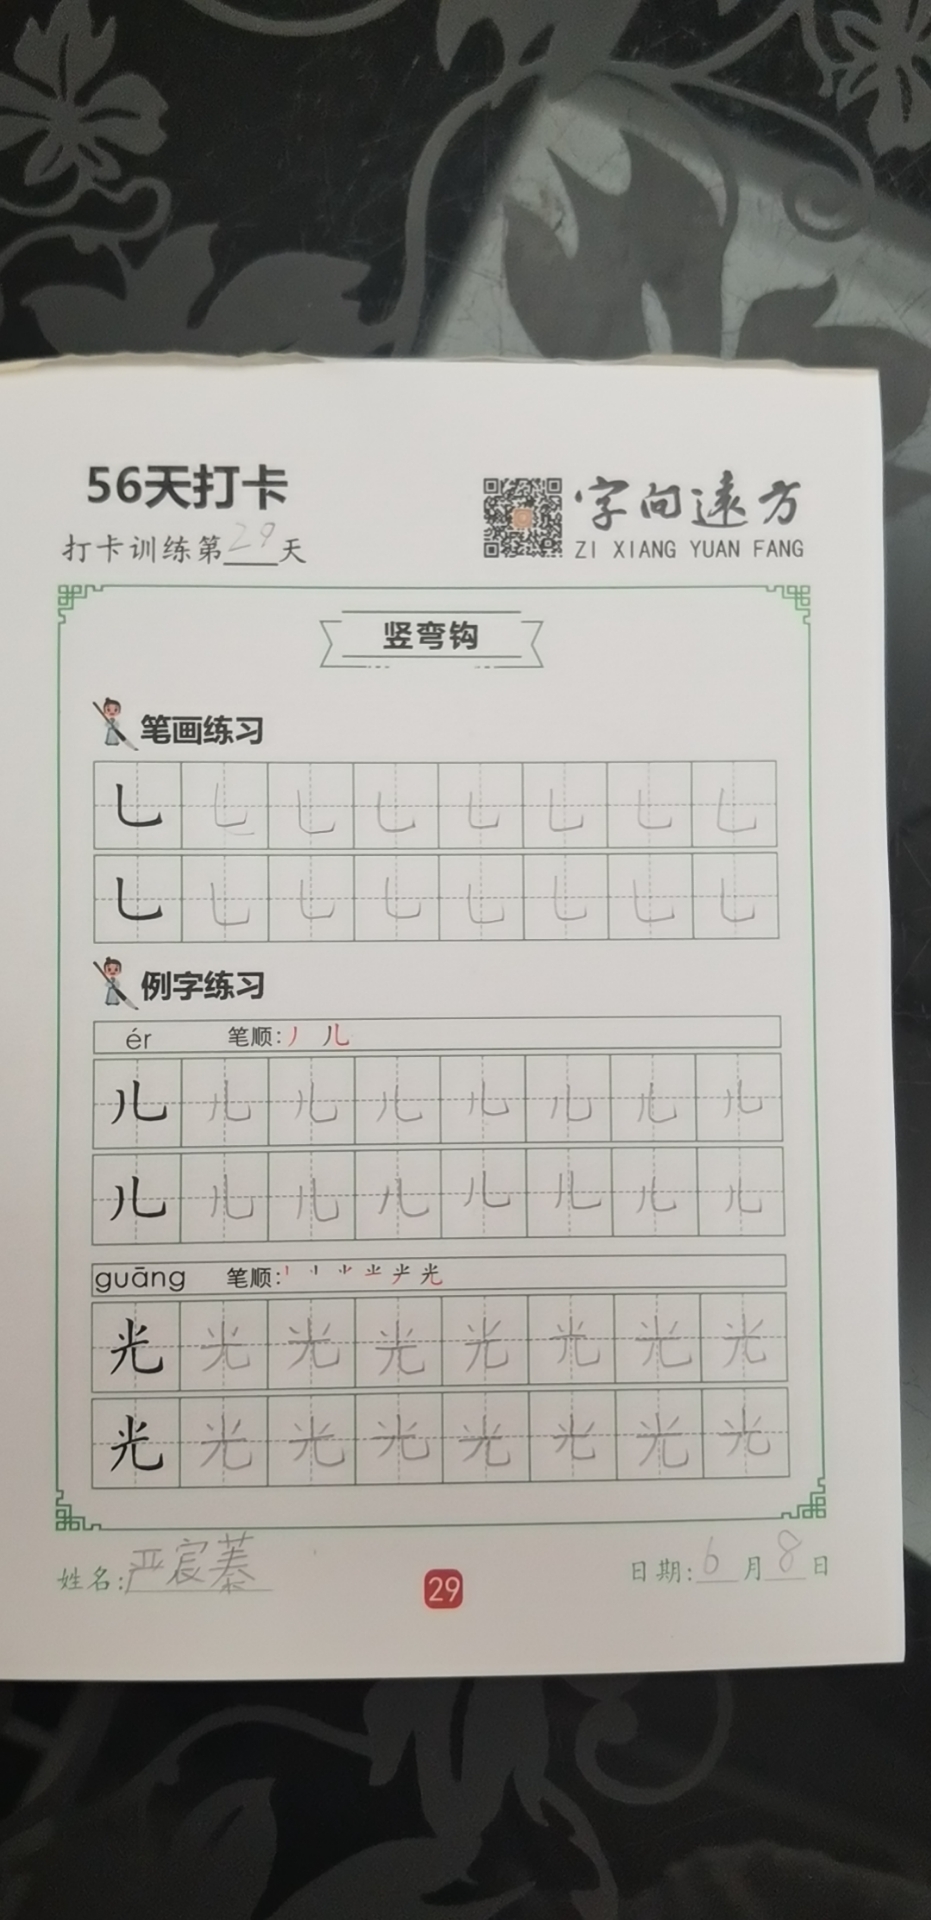 56天打卡
打卡训练第29天
字向遠方
ZI XIANG YUAN FANG
竖弯钩
笔画练习
乚 乚 乚 乚 乚 乚 乚 乚
乚 乚 乚 乚 乚 乚 乚 乚
例字练习
ér 笔顺: 丿 儿
儿 儿 儿 儿 儿 儿 儿 儿
儿 儿 儿 儿 儿 儿 儿 儿
guāng 笔顺: 光
光 光 光 光 光 光 光 光
光 光 光 光 光 光 光 光
姓名: 严宸蓁
29
日期: 6月8日